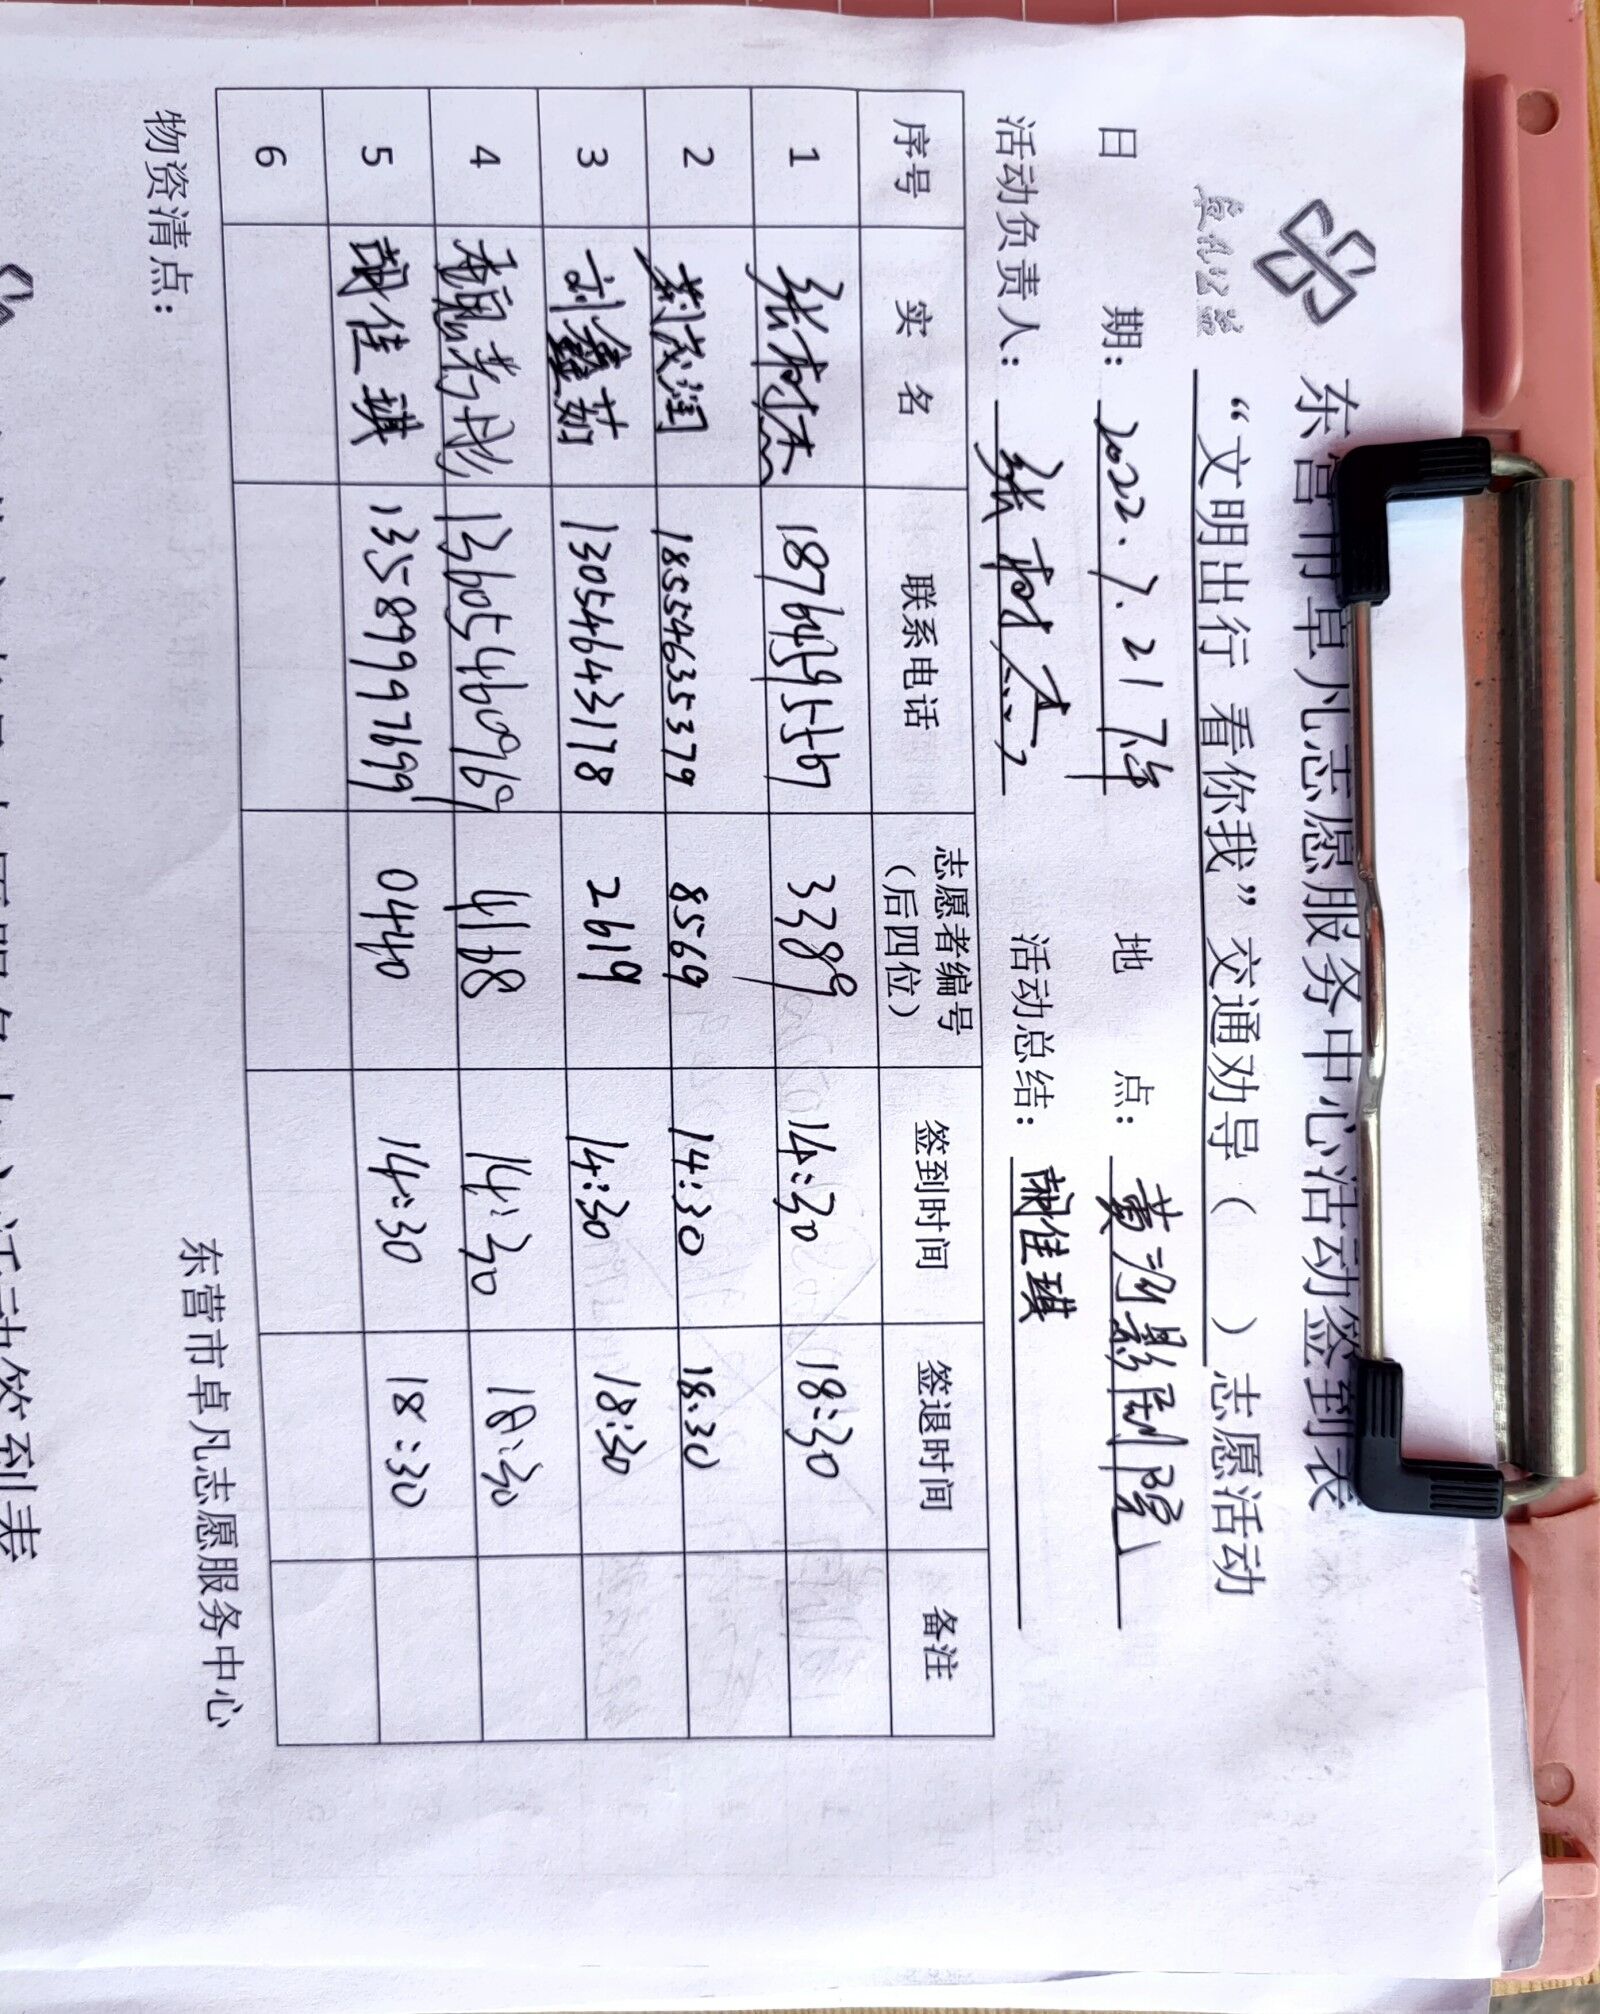 东营市卓凡志愿服务中心活动签到表
卓凡公益
“文明出行 看你我”交通劝导（ ）志愿活动
日 期：2022.7.21下午 地 点：黄河影剧院
活动负责人：张树杰 活动总结：胡佳琪
序号 实 名 联系电话 志愿者编号（后四位） 签到时间 签退时间 备注
1 张树杰 3389 14:30 18:30
2 荆茂润 18554635379 8569 14:30 18:30
3 刘鑫茹 13054643178 2619 14:30 18:30
4 13605460969 4168 14:30 18:30
5 胡佳琪 13589997699 0440 14:30 18:30
6
物资清点：
东营市卓凡志愿服务中心